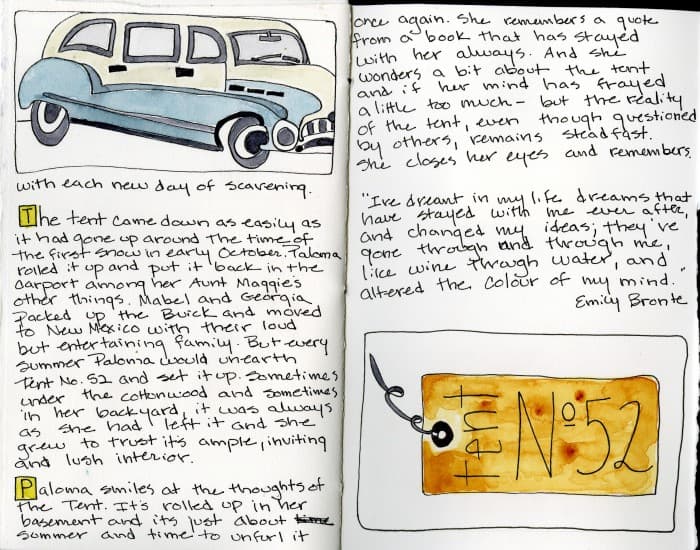 with each new day of scavening.
The tent came down as easily as
it had gone up around the time of
the first snow in early October. Paloma
rolled it up and put it back in the
carport among her Aunt Maggie's
other things. Mabel and Georgia
packed up the Buick and moved
to New Mexico with their loud
but entertaining family. But every
summer Paloma would unearth
Tent No. 52 and set it up. Sometimes
under the cottonwood and sometimes
in her backyard, it was always
as she had left it and she
grew to trust it's ample, inviting
and lush interior.
Paloma smiles at the thoughts of
the Tent. It's rolled up in her
basement and its just about time
summer and time to unfurl it
once again. She remembers a quote
from a book that has stayed
with her always. And she
wonders a bit about the tent
and if her mind has frayed
a little too much - but the reality
of the tent, even though questioned
by others, remains steadfast.
She closes her eyes and remembers.
"I've dreamt in my life dreams that
have stayed with me ever after,
and changed my ideas; they've
gone through and through me,
like wine through water, and
altered the colour of my mind."
Emily Bronte
tent
Nº 52